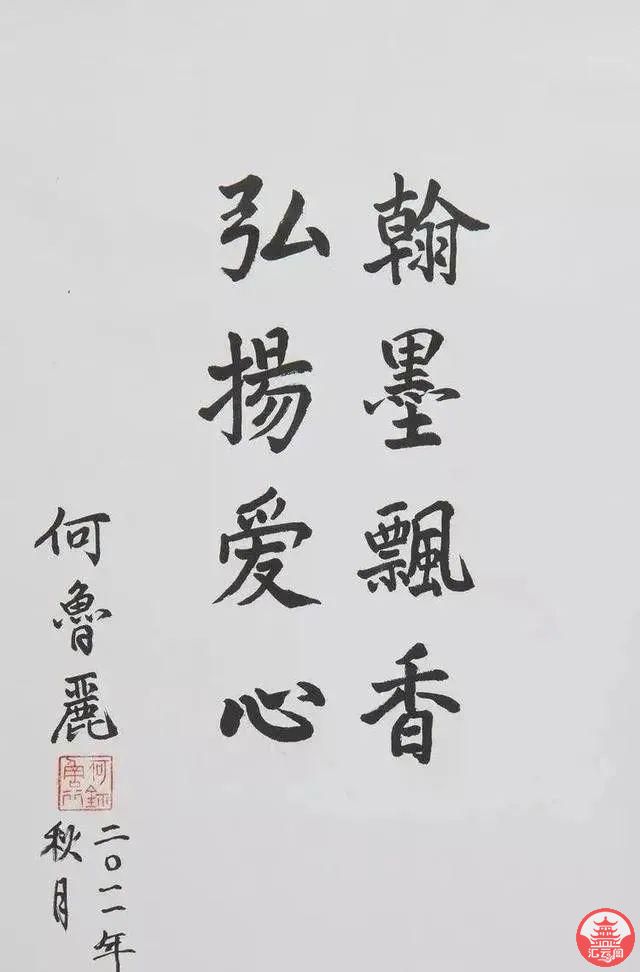 翰墨飄香
弘揚爱心
何魯麗
二〇一一年
秋月
汇云阁